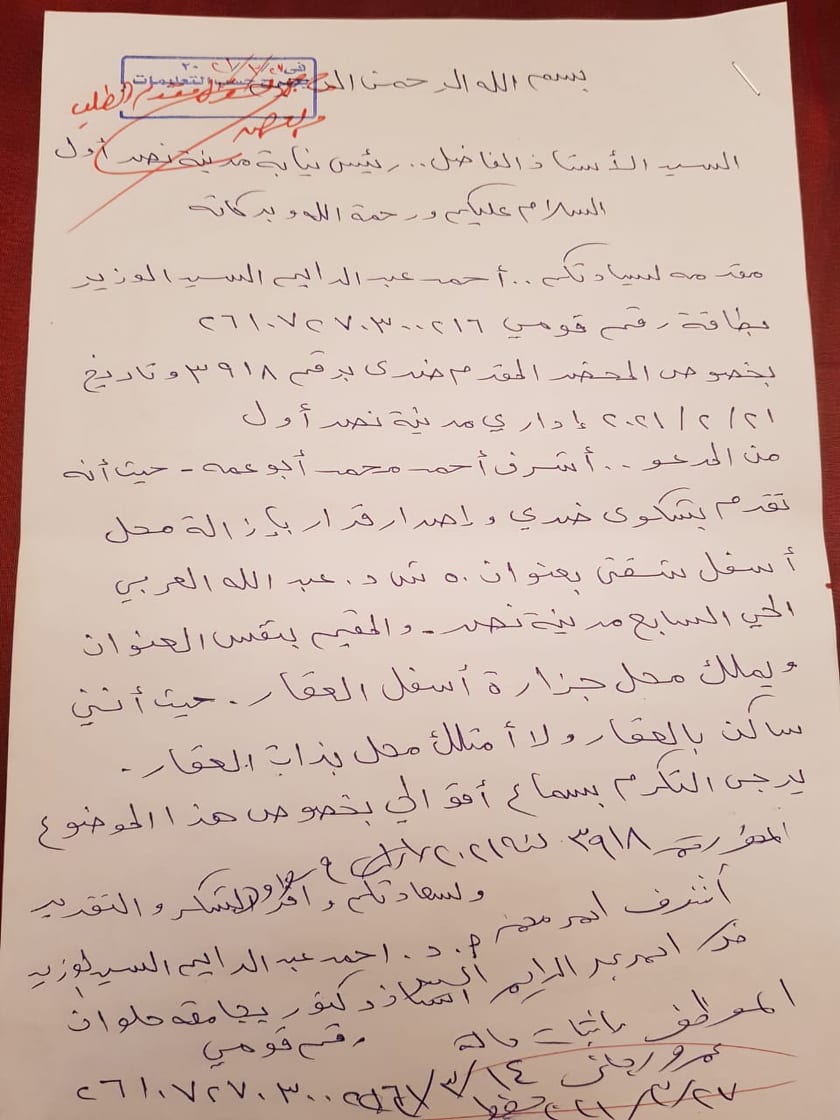 بسم الله الرحمن
في ٢٧/٢/٢٠٢١
السيد الأستاذ الفاضل.. رئيس نيابة مدينة نصر أول
السلام عليكم ورحمة الله وبركاته
مقدمه لسيادتكم.. أحمد عبد الدايم السيد الوزير
بطاقة رقم قومي ٢٦١٠٧٢٧٠٣٠٠٢١٦
بخصوص المحضر المقدم ضدى برقم ٣٩١٨ وتاريخ
٢٠٢١/٢/٢١ إداري مدينة نصر أول
من المدعو.. أشرف أحمد محمد أبو عمه - حيث أنه
تقدم بشكوى ضدي وإصدار قرار بإزالة محل
أسفل شقتى بعنوان ٥٠ ش د. عبد الله العربي
الحي السابع مدينة نصر - والمقيم بنفس العنوان
ويملك محل جزارة أسفل العقار. حيث أنني
ساكن بالعقار ولا أمتلك محل بذات العقار.
يرجى التكرم بسماع أقوالي بخصوص هذا الموضوع
المحضر رقم ٣٩١٨ لسنة ٢٠٢١
ولسعادتكم وافر الشكر والتقدير
أشرف أحمد محمد
أ.د. احمد عبد الدايم السيد الوزير
ضد احمد عبد الدايم السيد
استاذ دكتور بجامعة حلوان
الموظف بإثبات حالة
رقم قومي
١٤/٣
٢٦١٠٧٢٧٠٣٠٠